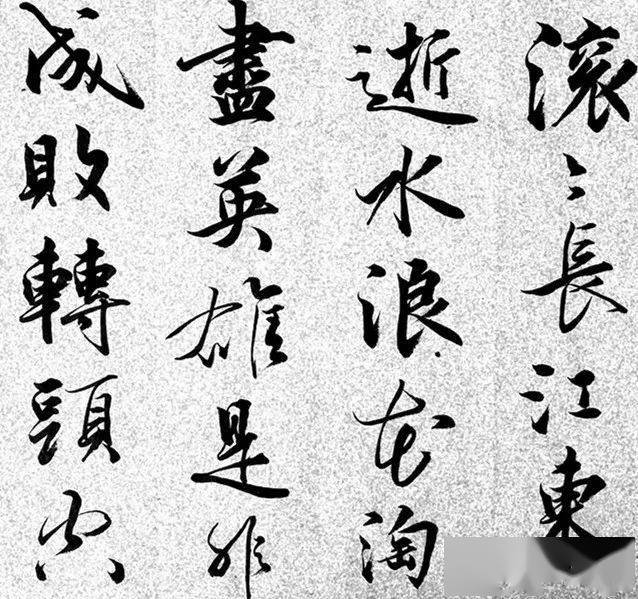 滚〻長江東
逝水浪花淘
盡英雄是非
成敗轉頭空